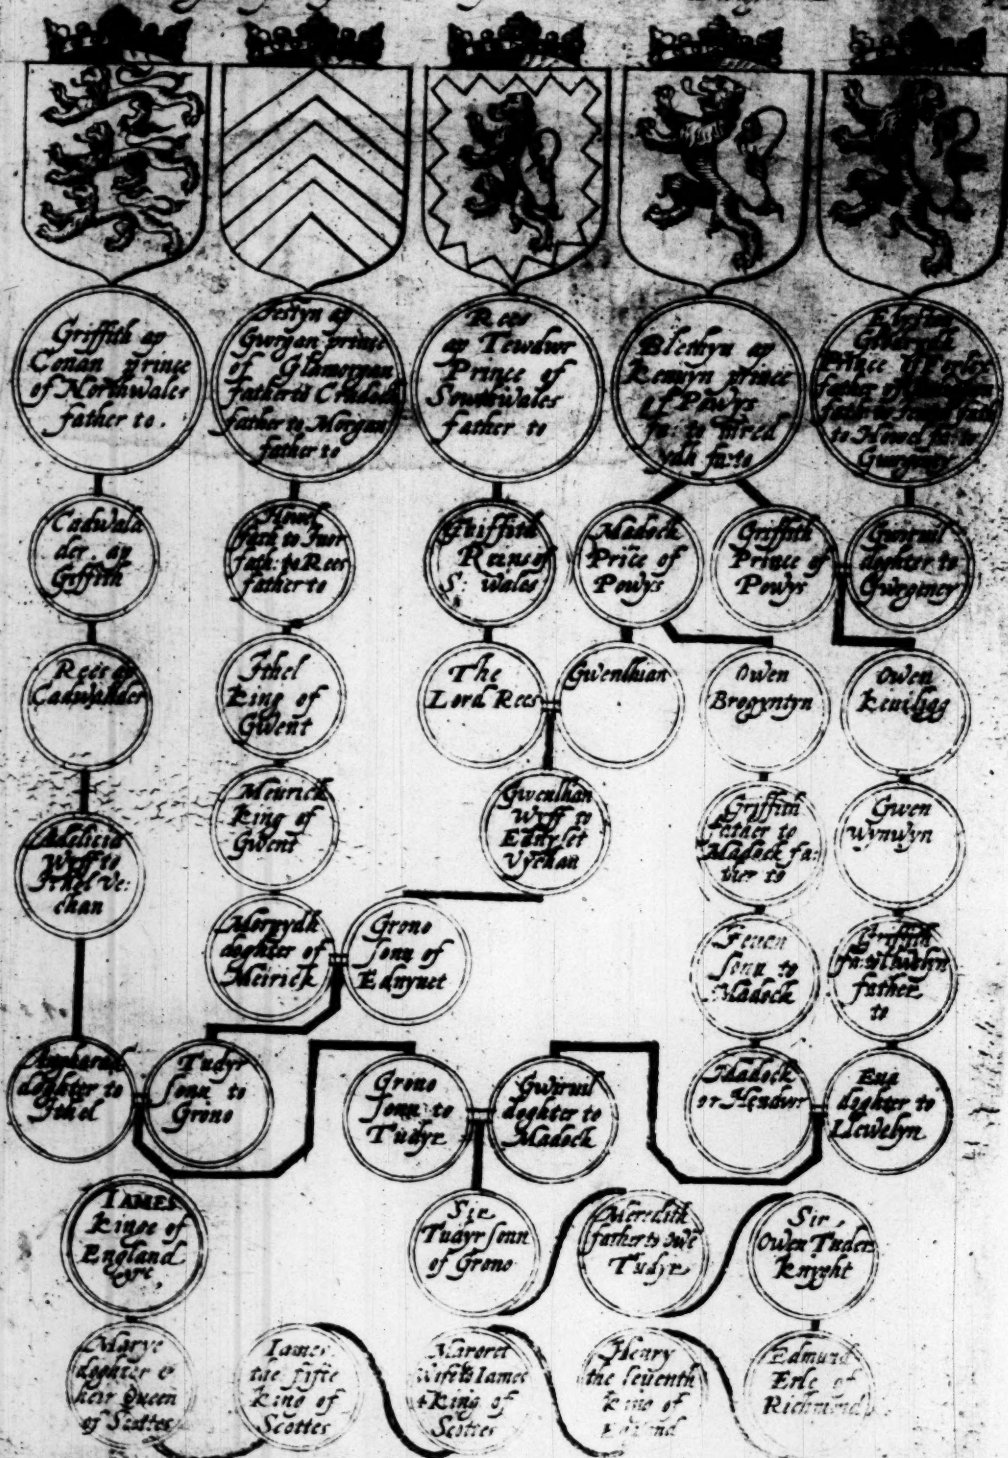 Griffith ap
Conan prince
of Northwales
father to.
Iestyn ap
Gwrgan prince
of Glamorgan
father to Cradock
father to Morgan
father to
Rees
ap Tewdwr
Prince of
Southwales
father to
Blethyn ap
Kenuyn prince
of Powys
fa: to Mred
ydh fa: to
Prince of
father
to Howel fa: to
Gwrgeney
Cadwala
der. ap
Griffith
Howel
fath to Iuor
fath: to Rees
father to
Griffith
of
S: wales
Madock
Price of
Powys
Griffith
Prince of
Powys
Gwiruil
doghter to
Gwrgeney
Rees ap
Cadwalader
Ithel
King of
Gwent
The
Lord Rees
Gwenlhian
Owen
Brogyntyn
Owen
Keuiligg
Meurick
King of
Gwent
Gwenlhan
Wyff to
Ednyfet
Vychan
Griffith
father to
Madock fa:
ther to
Gwen
Wynwyn
Adelicia
Wyff to
Ithel Ve:
chan
Morvydh
doghter of
Meirick
Grono
sonn of
Ednyuet
Ieuen
sonn to
Madock
Griffith
father
to
Angharad
doghter to
Ithel
Tudyr
sonn to
Grono
Grono
sonn to
Tudyr
Gwiruil
doghter to
Madock
Madock
or Hendwr
Eua
doghter to
Llewelyn
IAMES
Kinge of
England
&c,
Sir
Tudyr sonn
of Grono
Meredith
father to Owē
Tudyr
Sir,
Owen Tuder
knyght
Marye
doghter &
heir Queen
of Scottes
Iames
the fifte
King of
Scottes
Margret
Wife to Iames
4 King of
Scottes
Henry
the seuenth
King of
England
Edmund
Erle of
Richmond